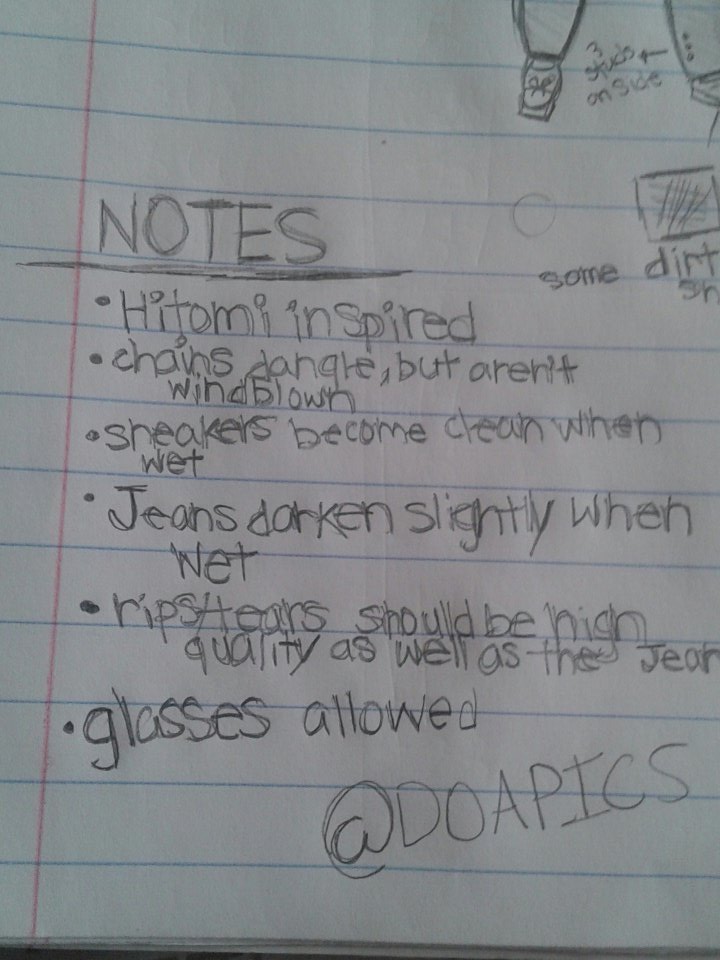 3
studs
on side
some dirt
sh
NOTES
• Hitomi inspired
• chains dangle, but aren't
windblown
• sneakers become clean when
wet
• Jeans darken slightly when
wet
• rips/tears should be high
quality as well as the Jean
• glasses allowed
@DOAPICS